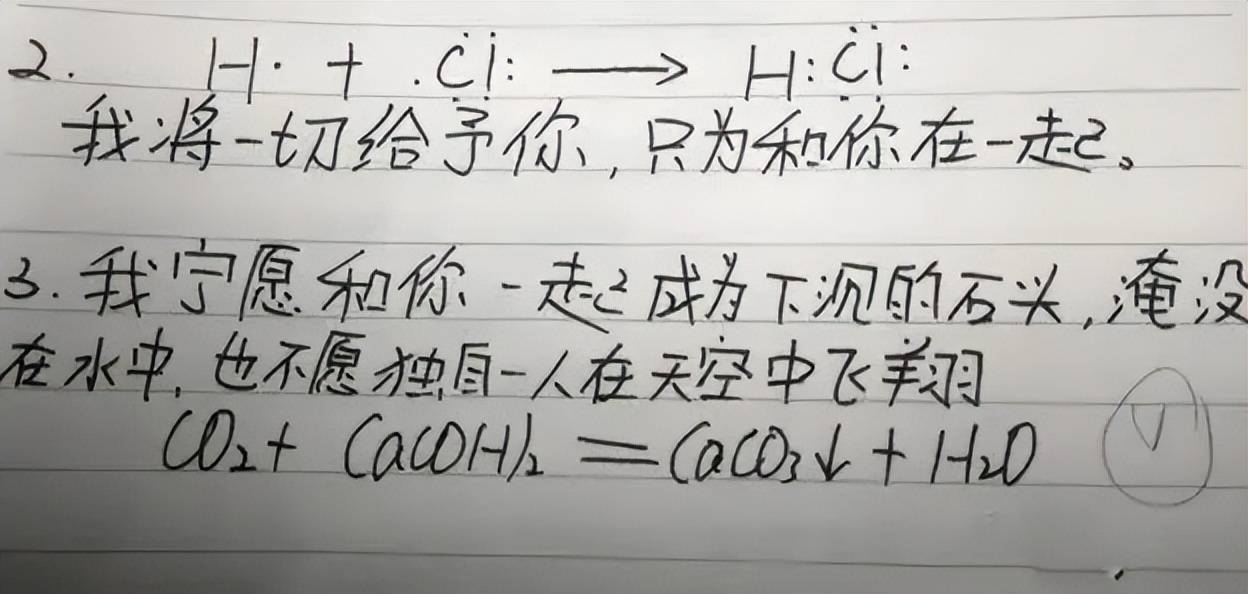 2. H· + ·C̈l: ⟶ H:C̈l:
我将一切给予你,只为和你在一起。
3. 我宁愿和你一起成为下沉的石头,淹没
在水中,也不愿独自一人在天空中飞翔
CO₂ + Ca(OH)₂ = CaCO₃↓ + H₂O